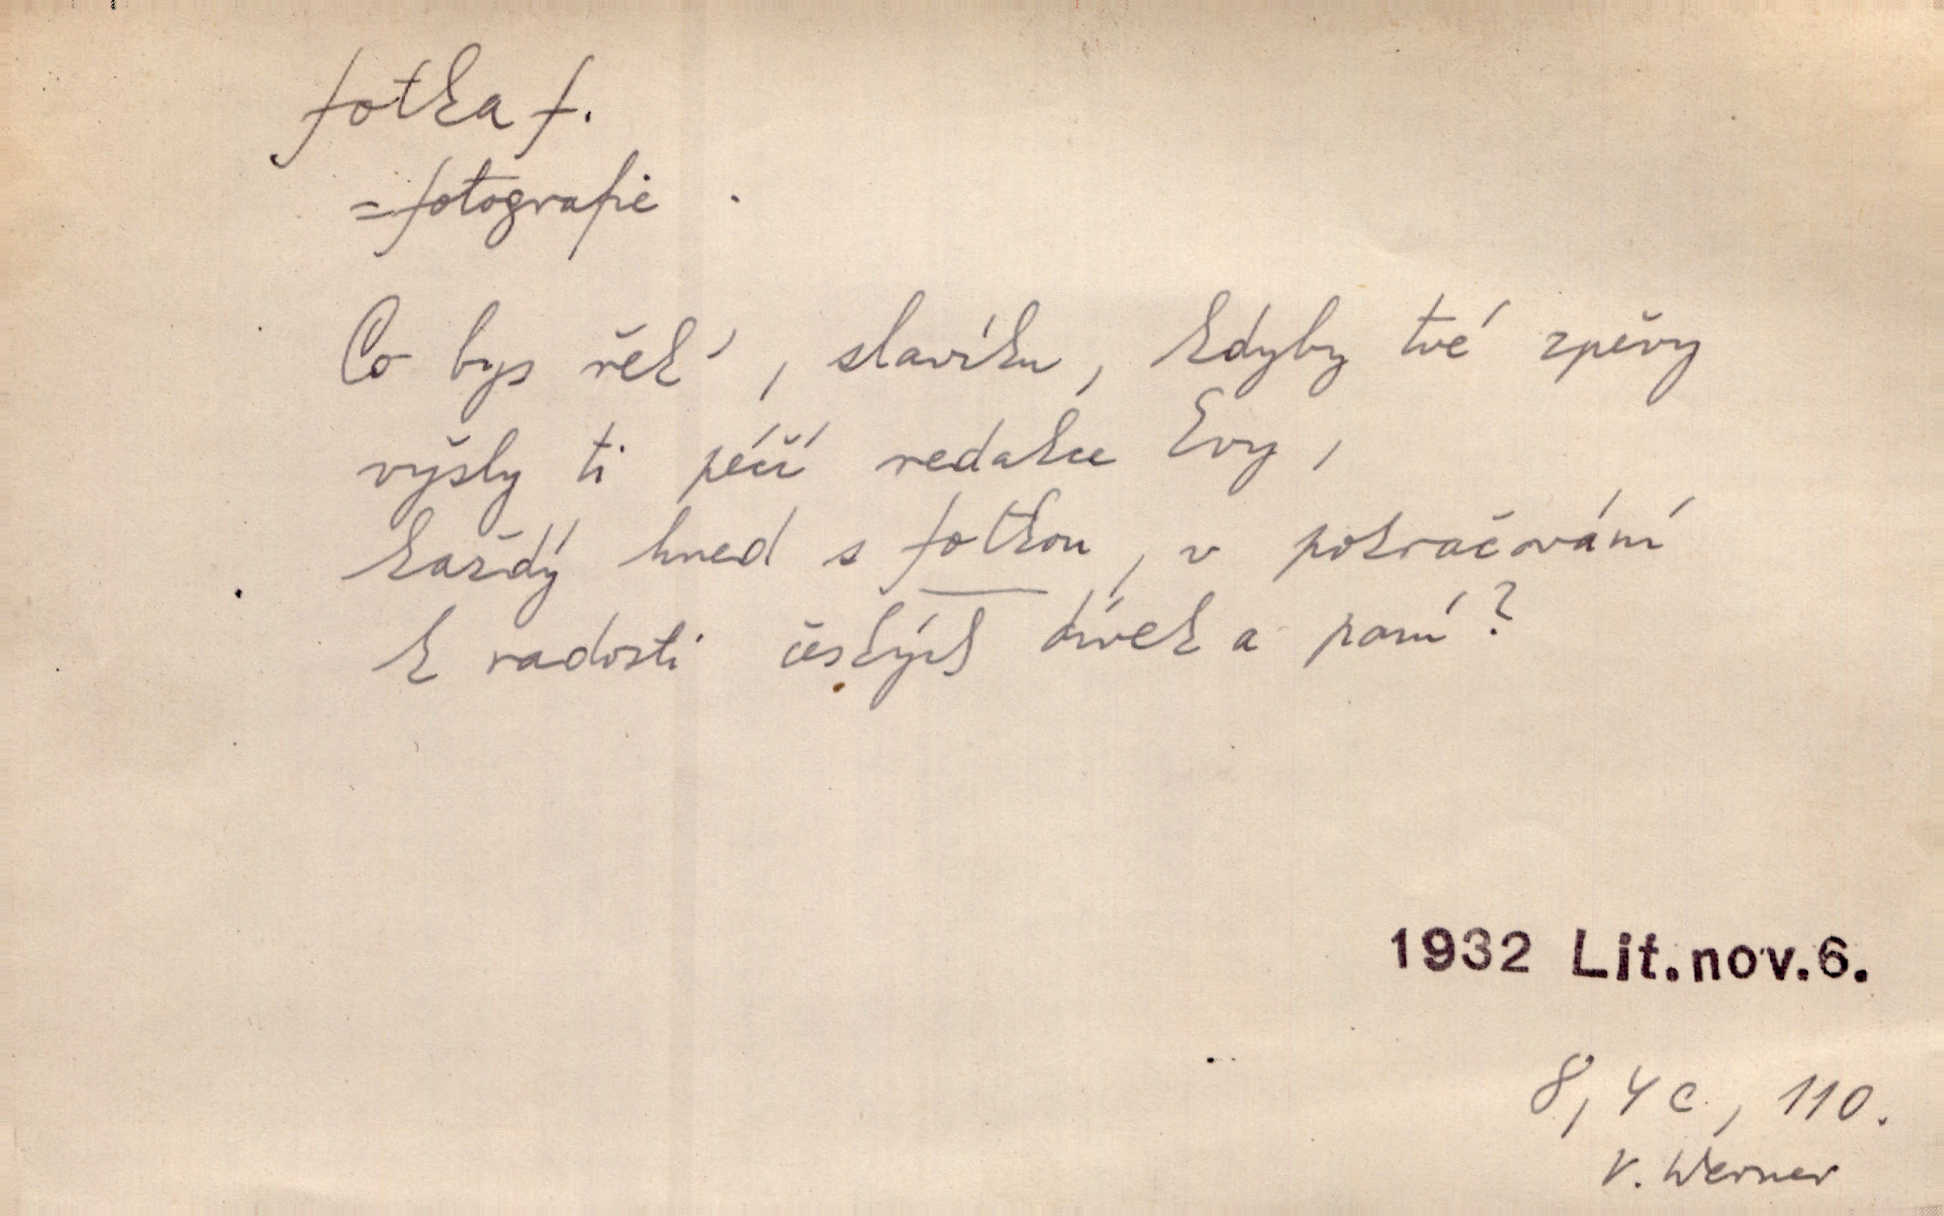 fotka f.
= fotografie
Co bys řek', slavíku, kdyby tvé zpěvy
vyšly ti péčí redakce Evy,
každý hned s fotkou, v pokračování
k radosti českých dívek a paní?
1932 Lit. nov. 6.
8, 4c, 110.
V. Werner